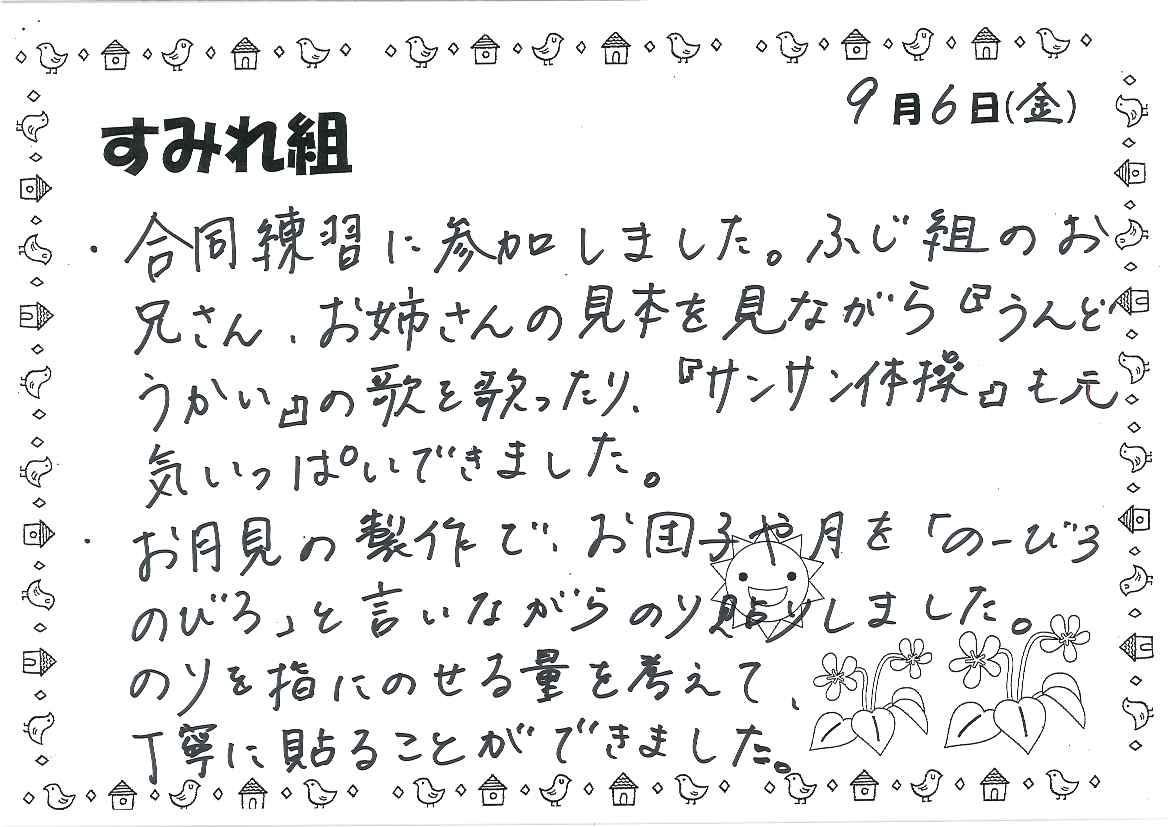 9月6日(金)
すみれ組
・合同練習に参加しました。ふじ組のお
兄さん、お姉さんの見本を見ながら『うんど
うかい』の歌を歌ったり、『サンサン体操』も元
気いっぱいできました。
・お月見の製作で、お団子や月を「のーびろ
のびろ」と言いながらのり貼りしました。
のりを指にのせる量を考えて、
丁寧に貼ることができました。